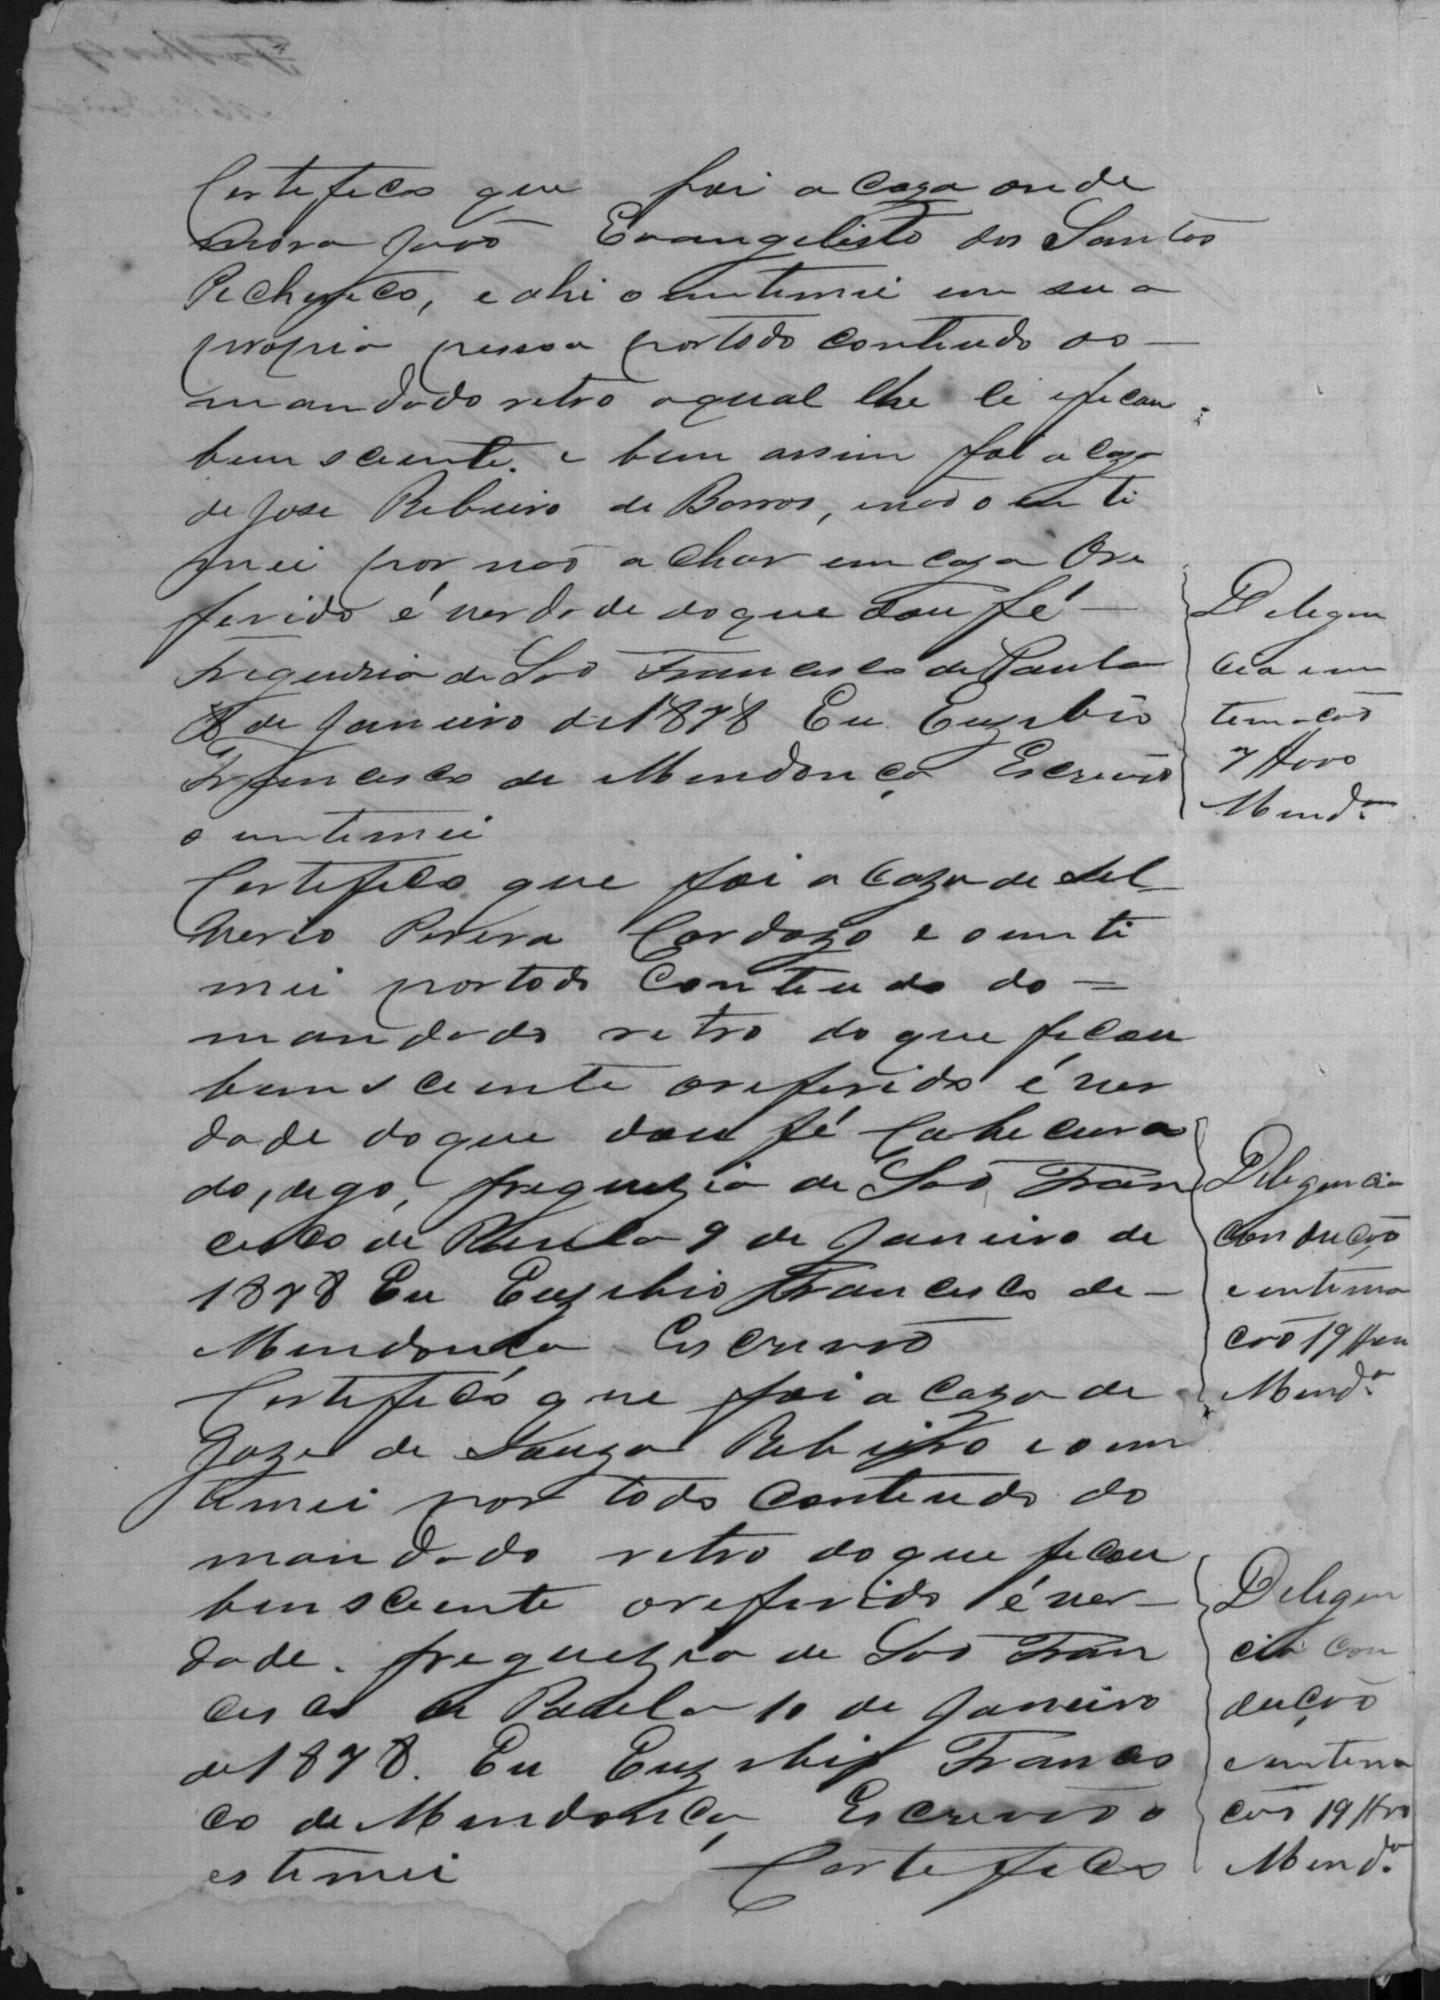 Certefico que foi a caza onde
mora João Evangelisto dos Santos
Pecheco, e ahi o intimei em sua
propia pessoa por todo conteudo do
mandado retro o qual lhe li e ficou
bem sciente. e bem assim foi a caza
de Jose Ribeiro de Barros, e não o inti
mei por não achar em caza O re
ferido é verdade do que dou fé
Freguezia de São Francisco de Paula
8 de Janeiro de 1878 Eu Euzebio
Francisco de Mendonça Escrivão
o intimei
Certefico que foi a caza de Sil
verio Perera Cardozo e o inti
mei por todo Conteudo do =
mandado retro do que ficou
bem sciente o referido é ver
dade do que dou fé
do, digo, freguezia de São Fran
cisco de Paula 9 de Janeiro de
1878 Eu Euzebio Francisco de
Mendonça Escrivão
Certefico que foi a caza de
Joze de Souza Ribeiro e o in
timei por todo conteudo do
mandado retro do que ficou
bem sciente o referido é ver
dade. freguezia de São Fran
cisco de Paula 10 de Janeiro
de 1878. Eu Euzebio Francis
co de Mendonça Escrivão o
estimei Certefico
Delegen
cia e in
temacão
Mend.ça
Delegencia
conducção
e intima
cão 19
Mend.ça
Delegen
cia con
ducção
e intima
cão 19
Mend.ça